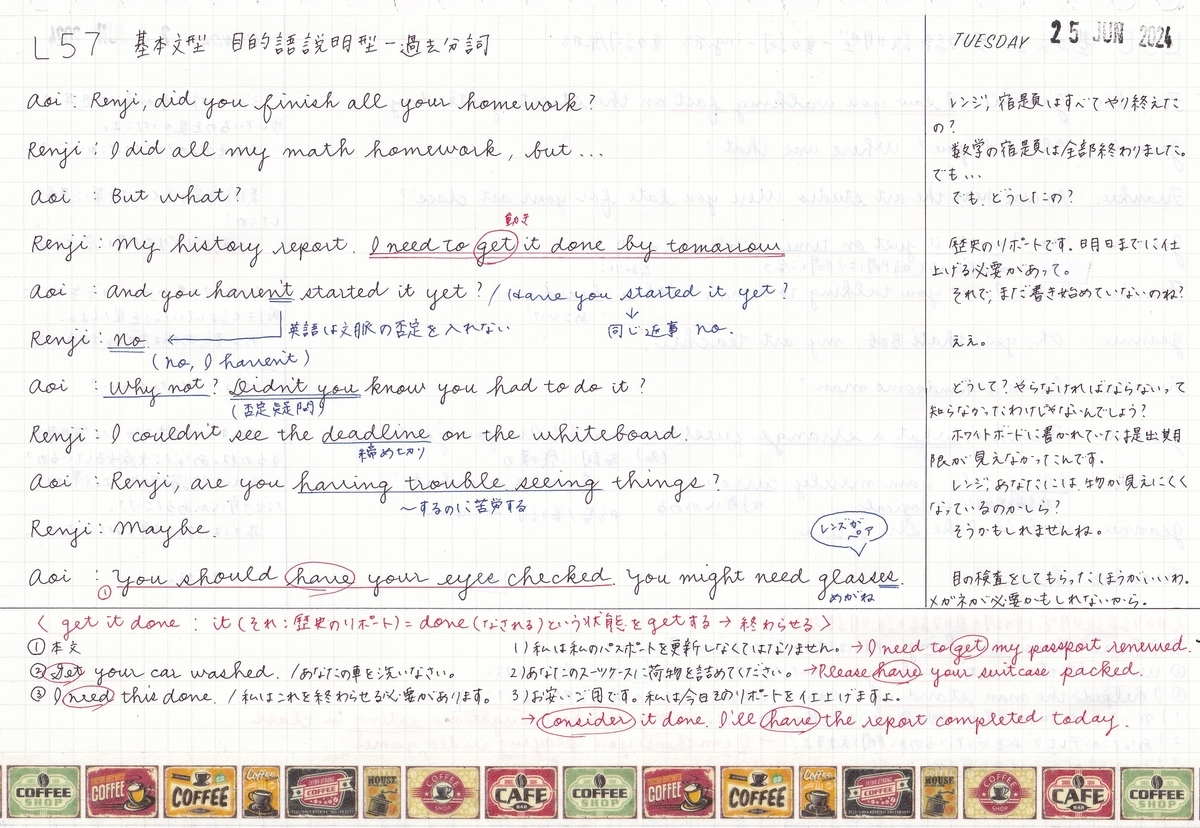 L57 基本文型 目的語説明型-過去分詞
TUESDAY 25 JUN 2024
Aoi : Renji, did you finish all your homework?
レンジ, 宿題はすべてやり終えた
の?
Renji : I did all my math homework, but...
数学の宿題は全部終わりました。
でも...
Aoi : But what?
でも、どうしたの?
動き
Renji : My history report. I need to get it done by tomorrow
歴史のリポートです。明日までに仕
上げる必要があって。
Aoi : And you haven't started it yet? / Have you started it yet?
それで, まだ書き始めていないのね?
英語は文脈の否定を入れない
同じ返事 no.
Renji : No.
ええ。
(no, I haven't)
Aoi : Why not? Didn't you know you had to do it?
どうして? やらなければならないって
知らなかったわけじゃないんでしょう?
(否定疑問)
Renji : I couldn't see the deadline on the whiteboard.
ホワイトボードに書かれていた提出期
限が見えなかったんです。
締め切り
Aoi : Renji, are you having trouble seeing things?
レンジ, あなたには, 物が見えにくく
なっているのかしら?
〜するのに苦労する
Renji : Maybe.
そうかもしれませんね。
レンズが
ペア
Aoi : You should have your eyes checked. You might need glasses.
①
めがね
目の検査をしてもらったほうがいいわ。
メガネが必要かもしれないから。
〈 get it done : it (それ:歴史のリポート) = done (なされる) という状態を getする → 終わらせる 〉
① 本文
② Get your car washed. / あなたの車を洗いなさい。
③ I need this done. / 私はこれを終わらせる必要があります。
1) 私は私のパスポートを更新しなくてはなりません。 → I need to get my passport renewed.
2) あなたのスーツケースに荷物を詰めてください。 → Please have your suitcase packed.
3) お安いご用です。私は今日そのリポートを仕上げますよ。
→ Consider it done. I'll have the report completed today.
COFFEE SHOP
COFFEE
COFFEE
Coffee
COFFEE
HOUSE
COFFEE
CAFE BAR
COFFEE SHOP
COFFEE
COFFEE
Coffee
COFFEE
HOUSE
COFFEE
CAFE BAR
COFFEE SHOP